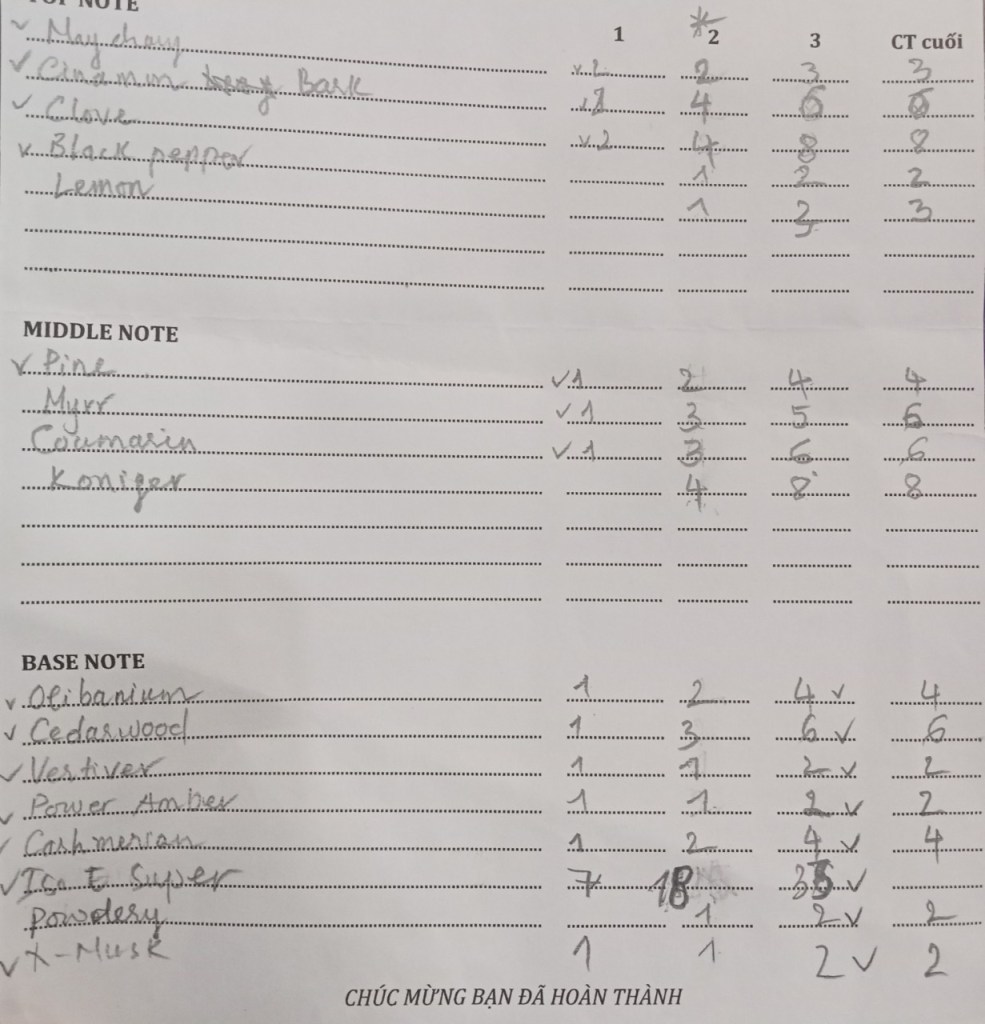 TOP NOTE
1 * 2 3 CT cuối
✓ May chang ✓2 2 3 3
✓ Cinamin Bark ✓1 4 6 6
✓ Clove ✓2 4 8 8
✓ Black pepper 1 2 2
Lemon 1 3
MIDDLE NOTE
✓ Pine ✓1 2 4 4
Myrr ✓1 3 5 6
Coumarin ✓1 3 6 6
Koniger 4 8 8
BASE NOTE
✓ Olibanium 1 2 4 ✓ 4
✓ Cedarwood 1 3 6 ✓ 6
✓ Vestiver 1 1 2 ✓ 2
✓ Power Amber 1 1 2 ✓ 2
✓ Cashmeran 1 2 4 ✓ 4
✓ Iso E Super 7 18 ✓
Powdery 1 2 ✓ 2
✓ X-Musk 1 1 2 ✓ 2
CHÚC MỪNG BẠN ĐÃ HOÀN THÀNH